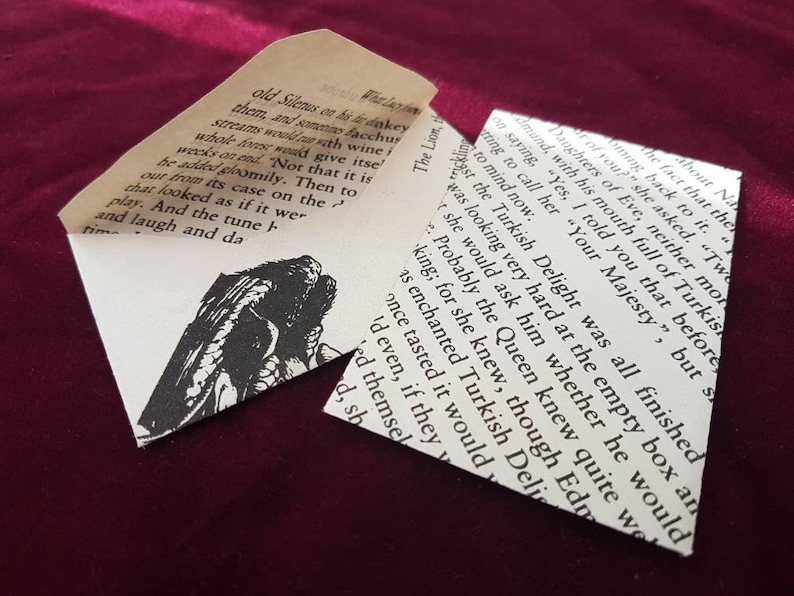 What Lucy
old Silenus on his fat donkey
them, and sometimes Bacchus
streams would run with wine i
whole forest would give itse
weeks on end. 'Not that it is
he added gloomily. Then to
out from its case on the d
that looked as if it wer
play. And the tune
and laugh and da
The Lion, t
rickling
about Na
the fact that ther
oming back to it. "
of you?" she asked, "Two
Daughters of Eve, neither mor
dmund, with his mouth full of Turkish
on saying, "Yes, I told you that before,
ring to call her "Your Majesty", but s
to mind now.
st the Turkish Delight was all finished
was looking very hard at the empty box an
she would ask him whether he would
e. Probably the Queen knew quite we
king; for she knew, though Edm
as enchanted Turkish Deli
once tasted it would
ld even, if they w
ed themsel
d, sh